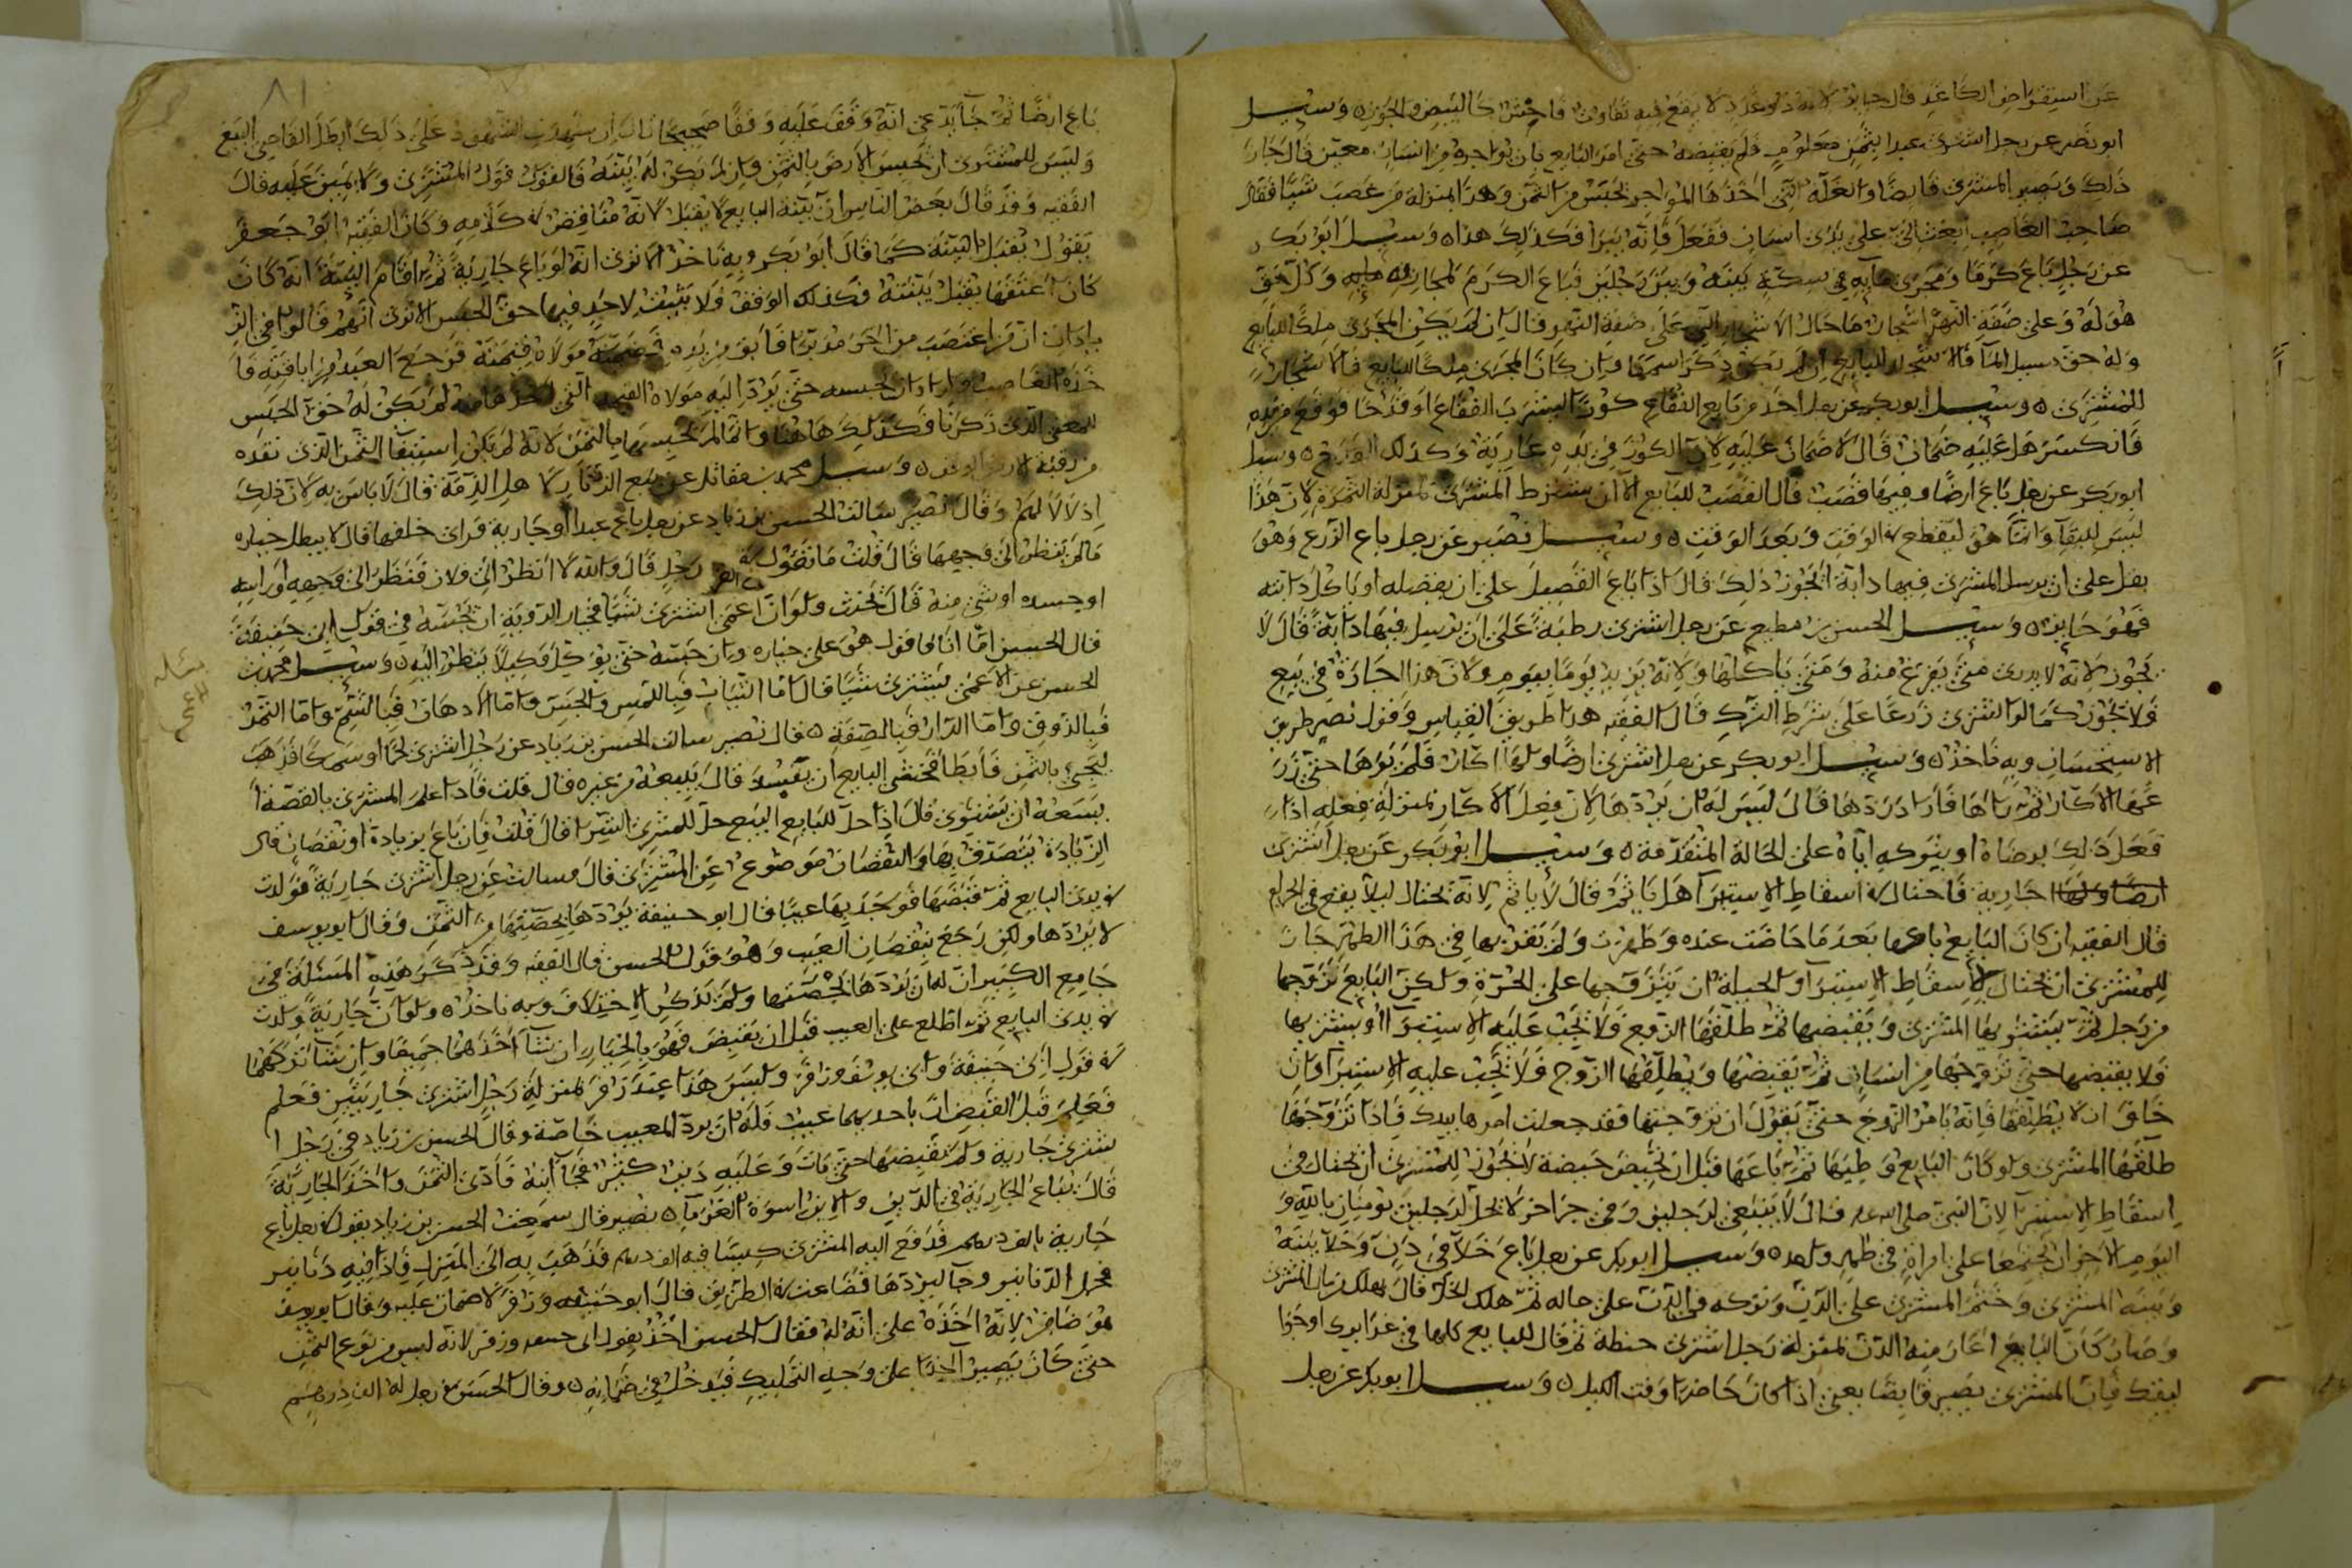 عن استقراض الكاغد قال جايز لانه ذو عدد لا يقع فيه تفاوت فاحش كالبيض والجوز ه وسيل
ابو نصر عن رجل اشترى عبدا بثمن معلوم فلم يقبضه حتى امر البايع بان يواجره من انسان معين قال جاز
ذلك ويصير المشترى قابضا والغلة التي اخذها المواجر تحبس من الثمن وهذا بمنزلة من غصب شيا فقال
صاحب الغاصب ابعث الى على يدى انسان ففعل فانه يبرا فكذلك هذا ه وسيل ابو بكر
عن رجل باع كرما ومجرى مايه في سكة بينه وبين رجلين فباع الكرم بمجارى مايه وكل حق
هو له وعلى ضفة النهر اشجار ما حال الاشجار التي على ضفة النهر قال ان لم يكن المجرى ملكا للبايع
وله حق مسيل المآ فالاشجار للبايع ان لم يكن ذكر اسمها وان كان المجرى ملكا للبايع فالاشجار
للمشترى ه وسيل ابو بكر عن رجل اخذ من بايع الفقاع كوزا ليشرب الفقاع او قدحا فوقع من يده
فانكسر هل عليه ضمان قال لا ضمان عليه لان الكوز في يده عارية وكذلك القدح ه وسيل
ابو بكر عن رجل باع ارضا وفيها قصب قال القصب للبايع الا ان يشترط المشترى بمنزلة الثمرة لان هذا
ليس للبقآ وانما هو ليقطع في الوقت وبعد الوقت ه وسيل نصير عن رجل باع الزرع وهو
بقل على ان يرسل المشترى فيها دابة ايجوز ذلك قال اذا باع القصيل على ان يفصله او ياكل دابته
فهو جايز ه وسيل الحسن بن مطيع عن رجل اشترى رطبة على ان يرسل فيها دابة قال لا
يجوز لانه لا يدرى متى يفرغ منه ومتى ياكلها ولانه يزيد يوما بيوم ولان هذا اجارة في بيع
فلا تجوز كما لو اشترى زرعا على شرط الترك قال الفقيه هذا طريق القياس وقول نصير طريق
الاستحسان وبه ناخذ ه وسيل ابو بكر عن رجل اشترى ارضا ولها اكار فلم يرها حتى زر
عها الاكار ثم راها فاراد ردها قال ليس له ان يردها لان فعل الاكار بمنزلة فعله اذا
فعل ذلك برضاه او بتوكه اياه على الحالة المتقدمة ه وسيل ابو بكر عن رجل اشترى
ارضا ولها جارية فاحتال في اسقاط الاستبرآ هل ياثم قال لا ياثم لانه يحتال ليلا يقع في الحرام
قال الفقيه ان كان البايع باعها بعد ما حاضت عنده وطهرت ولم يقربها في هذا الطهر جاز
للمشترى ان يحتال لاسقاط الاستبرآ والحيلة ان يتزوجها على الحرة ولكن البايع يزوجها
من رجل ثم يشتريها المشترى ويقبضها ثم طلقها الزوج فلا يجب عليه الاستبرآ او يشتريها
فلا يقبضها حتى تزوجها من انسان ثم يقبضها ويطلقها الزوج فلا يجب عليه الاستبرآ وان
خاف ان لا يطلقها فانه يامر الزوج حتى يقول ان تزوجتها فقد جعلت امرها بيدك فاذا تزوجها
طلقها المشترى ولو كان البايع وطيها ثم باعها قبل ان تحيض حيضة لا يجوز للمشترى ان يحتال في
اسقاط الاستبرآ لان النبى صلى الله عليه قال لا ينبغى لرجلين وفي خبر اخر لا يحل لرجلين يومنان بالله و
اليوم الاخر ان يجتمعا على امراة في طهر واحد ه وسيل ابو بكر عن رجل باع خلا في دن وخلا بينه
وبينه المشترى وختم المشترى على الدن وتركه في الدن على حاله ثم هلك الخل قال يهلك من مال المشترى
وصار كان البايع اعار منه الدن بمنزلة رجل اشترى حنطة ثم قال للبايع كلها في غرايرك او جوا
ليقك فان المشترى يصير قابضا يعنى اذا كان حاضرا وقت الكيل ه وسيل ابو بكر عن رجل
٨١
باع ارضا ثم جآ يدعى انه وقف عليه وقفا صحيحا قال ان شهدت الشهود على ذلك ابطل القاضى البيع
وليس للمشترى ان يحبس الارض بالثمن وان لم يكن له بينة فالقول قول المشترى ولا يمين عليه قال
الفقيه وقد قال بعض الناس ان بينة البايع لا يقبل لانه مناقض في كلامه وكان الفقيه ابو جعفر
يقول يقبل البينة كما قال ابو بكر وبه ناخذ الا ترى انه لو باع جارية ثم اقام البينة انه كان
كان اعتقها يقبل بينته فكذلك الوقف ولا يثبت لاحد فيها حق الحبس الا ترى انهم قالوا في الز
يادات ان من اغتصب من اخر مدبرا فابق من يده فضمنه مولاه قيمته فرجع العبد من اباقته فا
خذه الغاصب واراد ان يحبسه حتى يرد اليه مولاه القيمة التي اخذها منه لم يكن له حق الحبس
للمعنى الذى ذكرنا فكذلك هاهنا وانما لم يحبسها بالثمن لانه لم يكن استيفآ الثمن الذى نقده
من رقبة الارض وسيل محمد بن مقاتل عن بيع الزنار لاهل الذمة قال لا باس به لان ذلك
اذلالا لهم وقال نصير سالت الحسن بن زياد عن رجل باع عبدا او جارية فراى خلفها قال لا يبطل خياره
ما لم ينظر الى وجهها قال قلت ما تقول في رجل قال والله لا انظر الى فلان فنظر الى وجهه او راسه
او جسده او شئ منه قال يحنث ولو ان اعمى اشترى شيا فخيار الروية ان يجسه في قول ابى حنيفة
قال الحسن اما انا فاقول هو على خياره وان جسه حتى يوكل وكيلا ينظر اليه ه وسيل محمد بن
الحسن عن الاعمى يشترى شيا قال اما الثياب فباللمس والجس واما الادهان فبالشم واما الثمر
فبالذوق واما الدار فبالصفة ه قال نصير سالت الحسن بن زياد عن رجل اشترى لحما او سمكا فذهب
ليجئ بالثمن فابطا فخشى البايع ان يفسد قال يبيعه من غيره قال قلت فاذا علم المشترى بالقصة ا
يسعه ان يشترى قال اذا حل للبايع البيع حل للمشترى الشرا قال قلت فان باع بزيادة او نقصان قال
الزيادة يتصدق بها والنقصان موضوع عن المشترى قال وسالت عن رجل اشترى جارية فولدت
في يدى البايع ثم قبضها فوجد بها عيبا قال ابو حنيفة يردها بحصتها من الثمن وقال ابو يوسف
لا يردها ولكن رجع بنقصان العيب وهو قول الحسن قال الفقيه وقد ذكر هذه المسئلة في
جامع الكبير ان له ان يردها بحصتها ولم يذكر الاختلاف وبه ناخذ ه ولو ان جارية ولدت
في يدى البايع ثم اطلع على العيب قبل ان يقبض فهو بالخيار ان شآ اخذهما جميعا وان شآ تركهما
في قول ابى حنيفة وابى يوسف وزفر وليس هذا عند زفر بمنزلة رجل اشترى جاريتين فعلم
فعلم قبل القبض ان باحديهما عيب فله ان يرد المعيب خاصة وقال الحسن بن زياد في رجل ا
شترى جارية ولم يقبضها حتى مات وعليه دين كثير فجآ ابنه فادى الثمن واخذ الجارية
قال يباع الجارية في الدين والابن اسوة الغرمآ ه نصير قال سمعت الحسن بن زياد يقول في رجل باع
جارية بالف درهم فدفع اليه المشترى كيسا فيه الف درهم فذهب به الى المنزل فاذا فيه دنانير
فحمل الدنانير وجآ ليردها فضاعت في الطريق قال ابو حنيفه وزفر لا ضمان عليه وقال ابو يوسف
هو ضامن لانه اخذه على انه له فقال الحسن اخذ بقول ابى حنيفه وزفر لانه ليس من نوع الثمن
حتى كان يصير اخذا على وجه التمليك فيدخل في ضمانه ه وقال الحسن في رجل له الف درهم
مسئلة
الاعمى